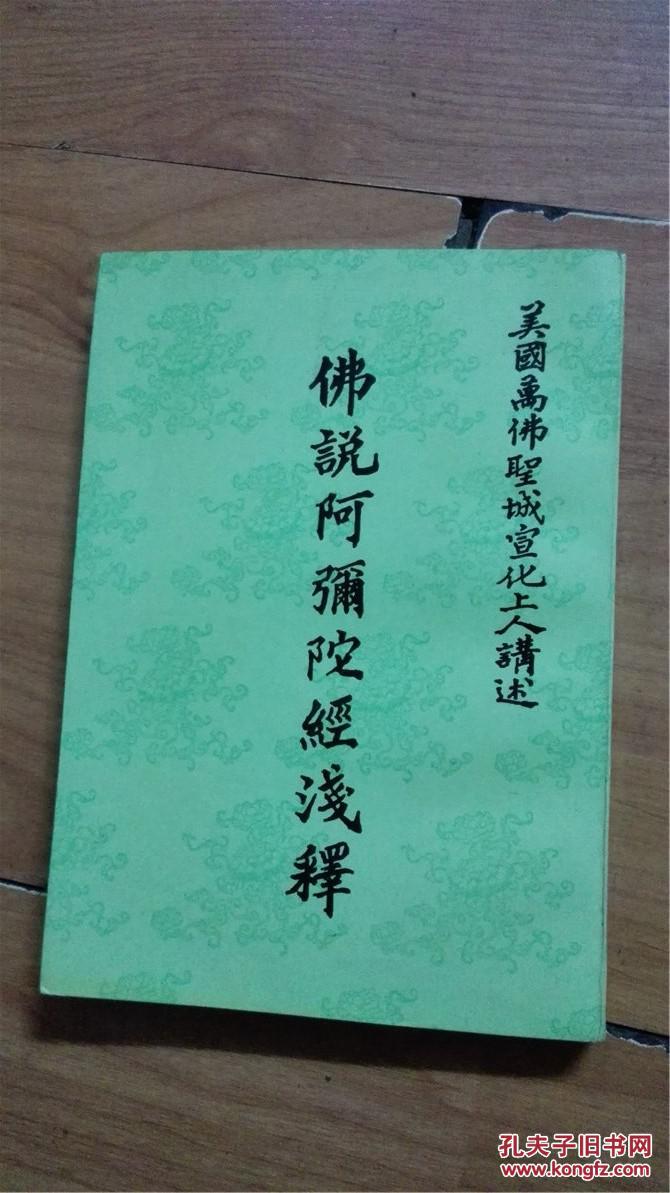 美國萬佛聖城宣化上人講述
佛說阿彌陀經淺釋
孔夫子旧书网
www.kongfz.com